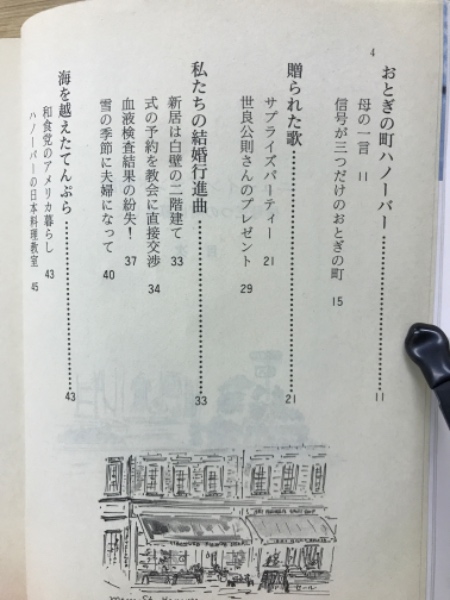 4
おとぎの町ハノーバー……………………11
母の一言 11
信号が三つだけのおとぎの町 15
贈られた歌……………………21
サプライズパーティー 21
世良公則さんのプレゼント 29
私たちの結婚行進曲……………………33
新居は白壁の二階建て 33
式の予約を教会に直接交渉 34
血液検査結果の紛失! 37
雪の季節に夫婦になって 40
海を越えたてんぷら……………………43
和食党のアメリカ暮らし 43
ハノーバーの日本料理教室 45
セール
Main St.